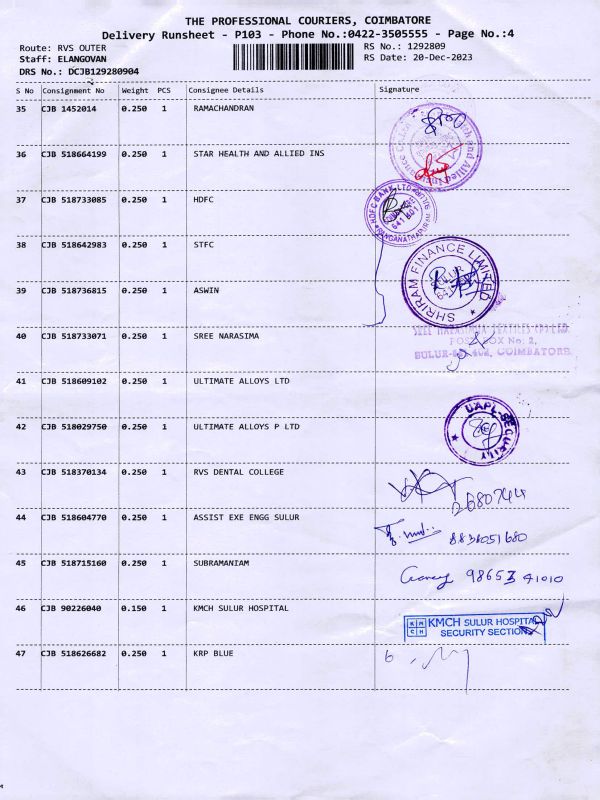 THE PROFESSIONAL COURIERS, COIMBATORE
Delivery Runsheet - P103 - Phone No.:0422-3505555 - Page No.:4
Route: RVS OUTER
RS No.: 1292809
Staff: ELANGOVAN
RS Date: 20-Dec-2023
DRS No.: DCJB129280904
S No Consignment No Weight PCS Consignee Details Signature
35 CJB 1452014 0.250 1 RAMACHANDRAN
36 CJB 518664199 0.250 1 STAR HEALTH AND ALLIED INS
37 CJB 518733085 0.250 1 HDFC
HDFC BANK LTD
RANGANATHAPURAM
38 CJB 518642983 0.250 1 STFC
SHRIRAM FINANCE LIMITED
SULUR
39 CJB 518736815 0.250 1 ASWIN
40 CJB 518733071 0.250 1 SREE NARASIMA
POST BOX No: 2,
COIMBATORE.
41 CJB 518609102 0.250 1 ULTIMATE ALLOYS LTD
42 CJB 518029750 0.250 1 ULTIMATE ALLOYS P LTD
UAPL-SECURITY
43 CJB 518370134 0.250 1 RVS DENTAL COLLEGE
2680744
44 CJB 518604770 0.250 1 ASSIST EXE ENGG SULUR
8838051680
45 CJB 518715160 0.250 1 SUBRAMANIAM
41010
46 CJB 90226040 0.150 1 KMCH SULUR HOSPITAL
KMCH SULUR HOSPITAL
SECURITY SECTION
47 CJB 518626682 0.250 1 KRP BLUE